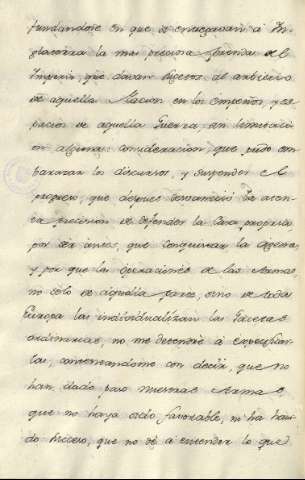 fundandose en que se entregavan à In-
glaterra la mas preciosa prenda de el
Imperio, que davan sujetos al arbitrio
de aquella Nacion en los empeños, y es-
pacios de aquella Guerra, sin
en alguna consideracion que pudo em-
barazar los discursos, y suspender el
progreso, que despues la
precision de defender la Casa propria
por ser antes, que conquistar la agena;
y por que las operaciones de las Armas,
no solo de aquella parte, sino de toda
Europa las individualizan las Gacetas
ordinarias, no me detendrè à especificar-
las, contentandome con decir, que no
han dado paso nuestras Armas
que no haya sido favorable, ni ha havi-
do suceso, que no dè à entender lo que